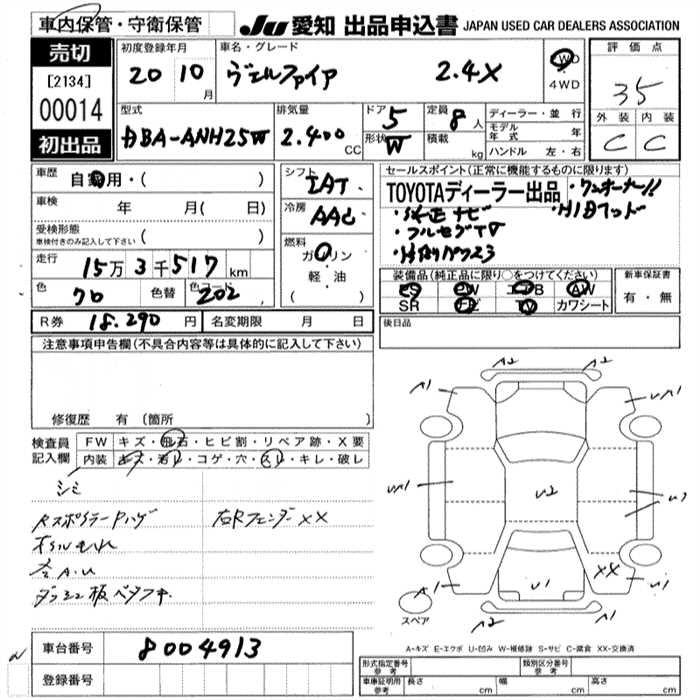 車内保管・守衛保管
JU 愛知 出品申込書 JAPAN USED CAR DEALERS ASSOCIATION
売切
[2134]
00014
初出品
初度登録年月
20 10月
車名・グレード
ヴェルファイア 2.4X
2WD
4WD
評価点
3.5
外装 内装
C C
型式
DBA-ANH25W
排気量
2.400 CC
ドア 5
形状 W
定員 8人
積載 kg
ディーラー・並行
モデル年式 年
ハンドル 左・右
車歴 自家用・( )
車検 年 月( 日)
受検形態
車検付きのみ記入して下さい ( )
走行 15万 3千517 km
色 70 色替 色コード 202
R券 18.290 円 名変期限 月 日
シフト IAT
冷房 AAC
燃料
ガソリン
軽・油
( )
セールスポイント(正常に機能するものに限ります)
TOYOTAディーラー出品 ・ワンオーナー!!
・純正ナビ ・HIDヘッド
・フルセグTV
装備品(純正品に限り○をつけてください)
PS PW エアB AW
SR ナビ TV カワシート
新車保証書
有・無
後日品
注意事項申告欄(不具合内容等は具体的に記入して下さい)
修復歴 有 (箇所 )
検査員記入欄
FW キズ・飛石・ヒビ割・リペア跡・X要
内装 キズ・汚レ・コゲ・穴・スレ・キレ・破レ
シミ
右Rフェンダー XX
各A.U
A2
A1
U2
U1
XX
A1
A2
スペア
A-キズ E-エクボ U-凹み W-補修跡 S-サビ C-腐食 XX-交換済
車台番号 8004913
登録番号
形式指定番号 参考
類別区分番号 参考
車庫証明用 参考 長さ cm 幅 cm 高さ cm